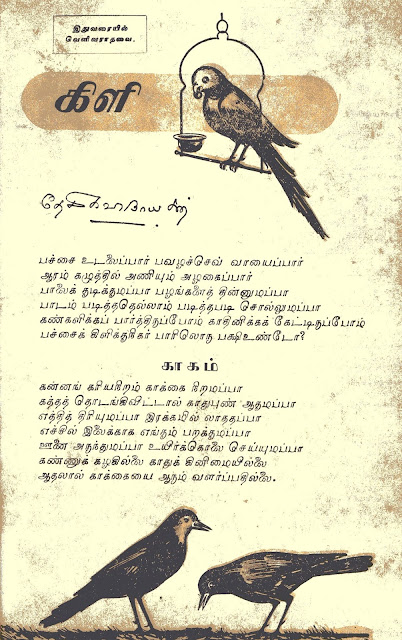 இதுவரையில்
வெளிவராதவை.
கிளி
பச்சை உடலைப்பார் பவழச்செவ் வாயைப்பார்
ஆரம் கழுத்தில் அணியும் அழகைப்பார்
பாலைக் குடிக்குமப்பா பழங்களைத் தின்னுமப்பா
பாடம் படித்ததெல்லாம் படித்தபடி சொல்லுமப்பா
கண்களிக்கப் பார்த்திருப்போம் காதினிக்கக் கேட்டிருப்போம்
பச்சைக் கிளிக்குநிகர் பாரிலொரு பக்ஷிஉண்டோ?
காகம்
கன்னங் கரியநிறம் காக்கை நிறமப்பா
கத்தத் தொடங்கிவிட்டால் காதுபுண் ஆகுமப்பா
எத்தித் திரியுமப்பா இரக்கமில் லாததப்பா
எச்சில் இலைக்காக எங்கும் பறக்குமப்பா
ஊனை அருந்துமப்பா உயிர்க்கொலை செய்யுமப்பா
கண்ணுக் கழகில்லை காதுக் கினிமையில்லை
ஆதலால் காக்கையை ஆரும் வளர்ப்பதில்லை.